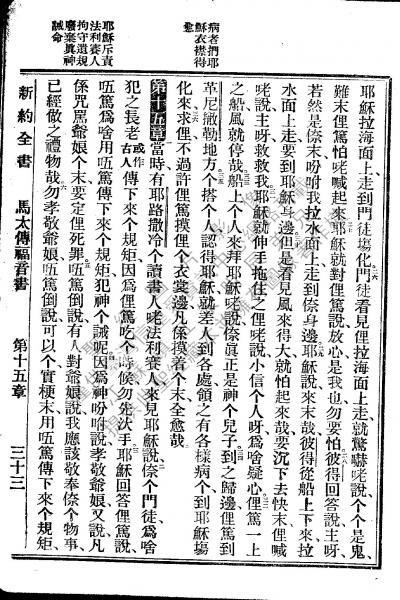 病者捫耶
穌衣襟得
愈
耶穌斥責
法利賽人
拘守遺規
廢棄眞神
誡命
耶穌拉海面上走到門徒塲化門徒看見俚拉海面上走、就驚嚇咾說、个个是鬼、
難末俚篤怕咾喊起來耶穌就對俚篤說放心是我也勿要怕彼得回答說、主呀、
若然是倷末吩咐我拉水面上走到倷身邊耶穌說來末哉彼得從船上下來、拉
水面上走要到耶穌身邊但是看見風來得大就怕起來哉要沉下去快末俚喊
咾說、主呀救救我耶穌就伸手拖住之俚咾說小信个人呀爲啥疑心俚篤一上
之船風就停哉船上个人來拜耶穌說倷眞正是神个兒子到之歸邊俚篤到
革尼撒勒地方个搭个人認得耶穌就差人到各處領之有各樣病个到耶穌塲
化來求俚不過許俚篤摸俚个衣裳邊凡係摸着个末全愈哉
第十五章當時有耶路撒冷个讀書人咾法利賽人來見耶穌說倷个門徒爲啥
犯之長老或作古人傳下來个規矩因爲俚篤吃个時候勿先汏手耶穌回答俚篤說、
㕶篤爲啥用㕶篤傳下來个規矩犯神个誡呢因爲神吩咐說孝敬爺娘又說凡
係咒罵爺娘个末要定俚死罪㕶篤倒說有人對爺娘說我應該敬奉倷个物事、
已經做之禮物哉勿孝敬爺娘㕶篤倒說可以个實梗末用㕶篤傳下來个規矩、
新約全書 馬太傳福音書 第十五章 三十三